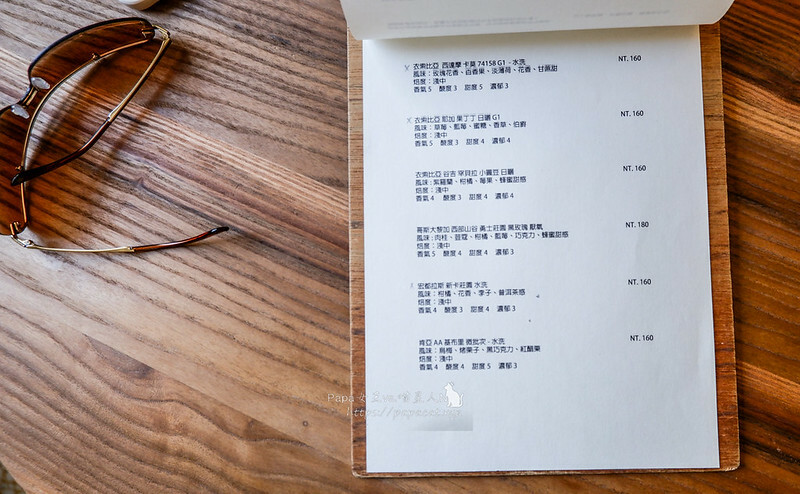 衣索比亞 西達摩 卡莫 74158 G1 - 水洗 NT. 160
風味：玫瑰花香、百香果、淡薄荷、花香、甘蔗甜
焙度：淺中
香氣 5 酸度 3 甜度 5 濃郁 3
衣索比亞 耶加 果丁丁 日曬 G1 NT. 160
風味：草莓、藍莓、蜜糖、香草、伯爵
焙度：淺中
香氣 5 酸度 3 甜度 4 濃郁 4
衣索比亞 谷吉 罕貝拉 小農豆 日曬 NT. 160
風味：紫羅蘭、柑橘、莓果、蜂蜜甜感
焙度：淺中
香氣 4 酸度 3 甜度 4 濃郁 4
哥斯大黎加 西部山谷 勇士莊園 黑玫瑰 厭氧 NT. 180
風味：肉桂、荳蔻、柑橘、藍莓、巧克力、蜂蜜甜感
焙度：淺中
香氣 5 酸度 4 甜度 4 濃郁 3
宏都拉斯 新卡莊園 水洗 NT. 160
風味：柑橘、花香、李子、普洱茶感
焙度：淺中
香氣 4 酸度 4 甜度 3 濃郁 3
肯亞 AA 基布里 微批次 - 水洗 NT. 160
風味：烏梅、烤栗子、黑巧克力、紅醋栗
焙度：淺中
香氣 4 酸度 4 甜度 5 濃郁 3
Papa